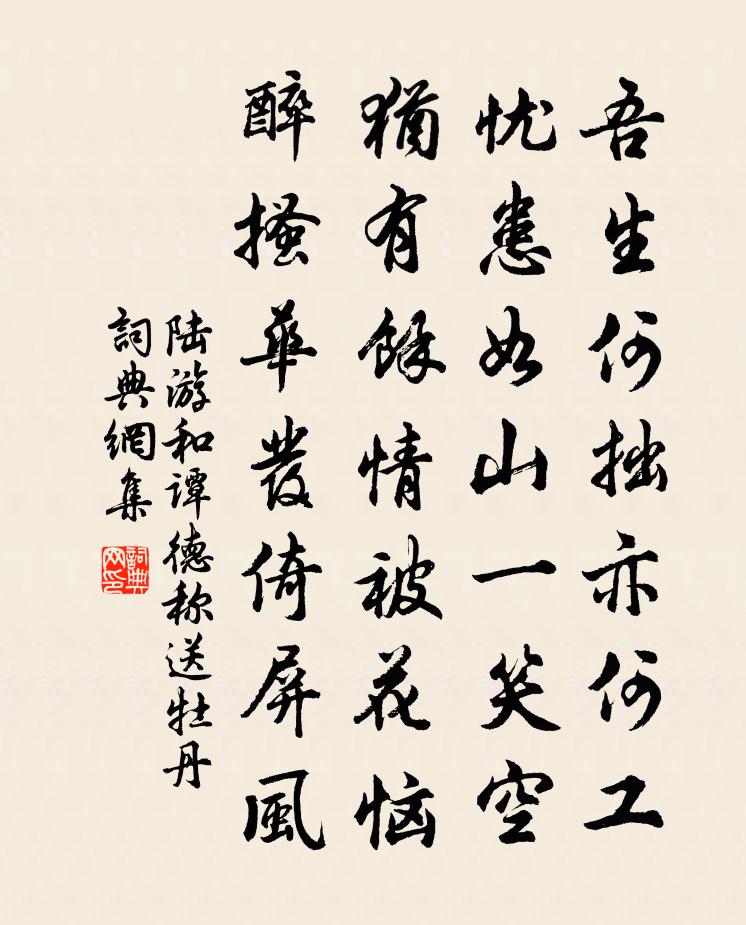 吾生何拙亦何工
忧患如山一笑空
猶有餘情被花恼
醉搔華发倚屏風
陆游和谭德称送牡丹
詞典網集
詞典网印